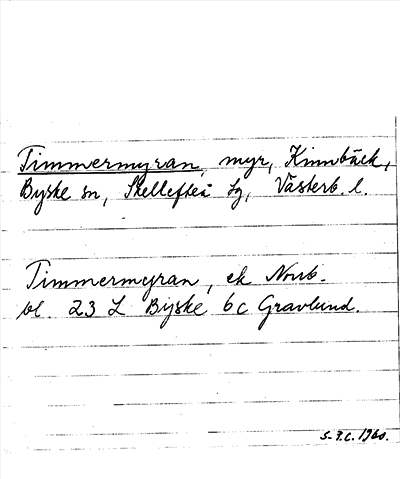 Timmermyran, myr, Kinnbäck,
Byske sn, Skellefteå tg, Västerb. l.
Timmermyran, ek Norrb.
bl. 23 L Byske 6c Gravlund.
S-F.C. 1960.